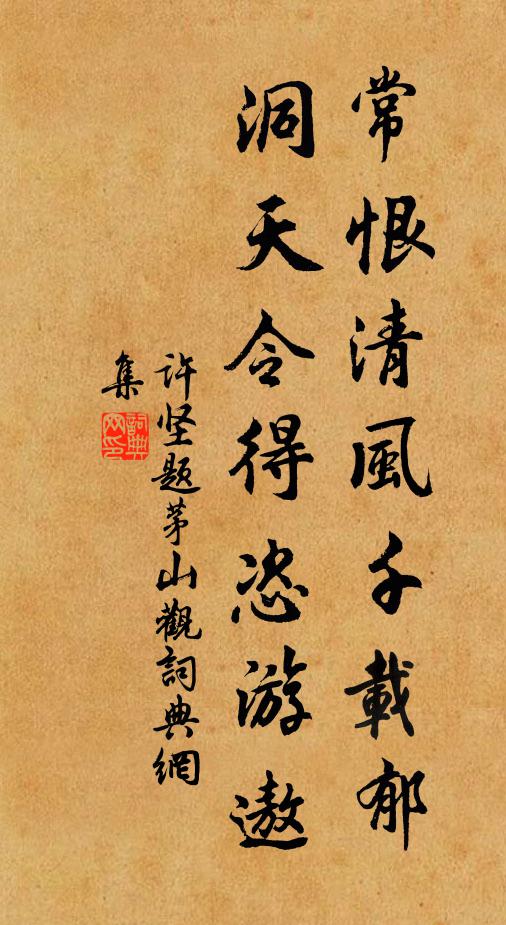 常恨清風千載郁
洞天令得恣游遨
许坚题茅山觀詞典網
集
詞典網印